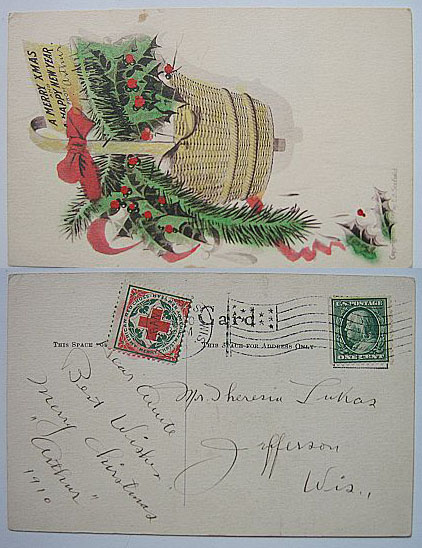 A MERRY XMAS
HAPPY NEW YEAR
Card
THIS SPACE
THIS SPACE FOR ADDRESS ONLY
U.S. POSTAGE
ONE CENT
Dear
Best Wishes
Merry Christmas
"Arthur"
1910
Mr. Theresia Lukas
Jefferson
Wis.,